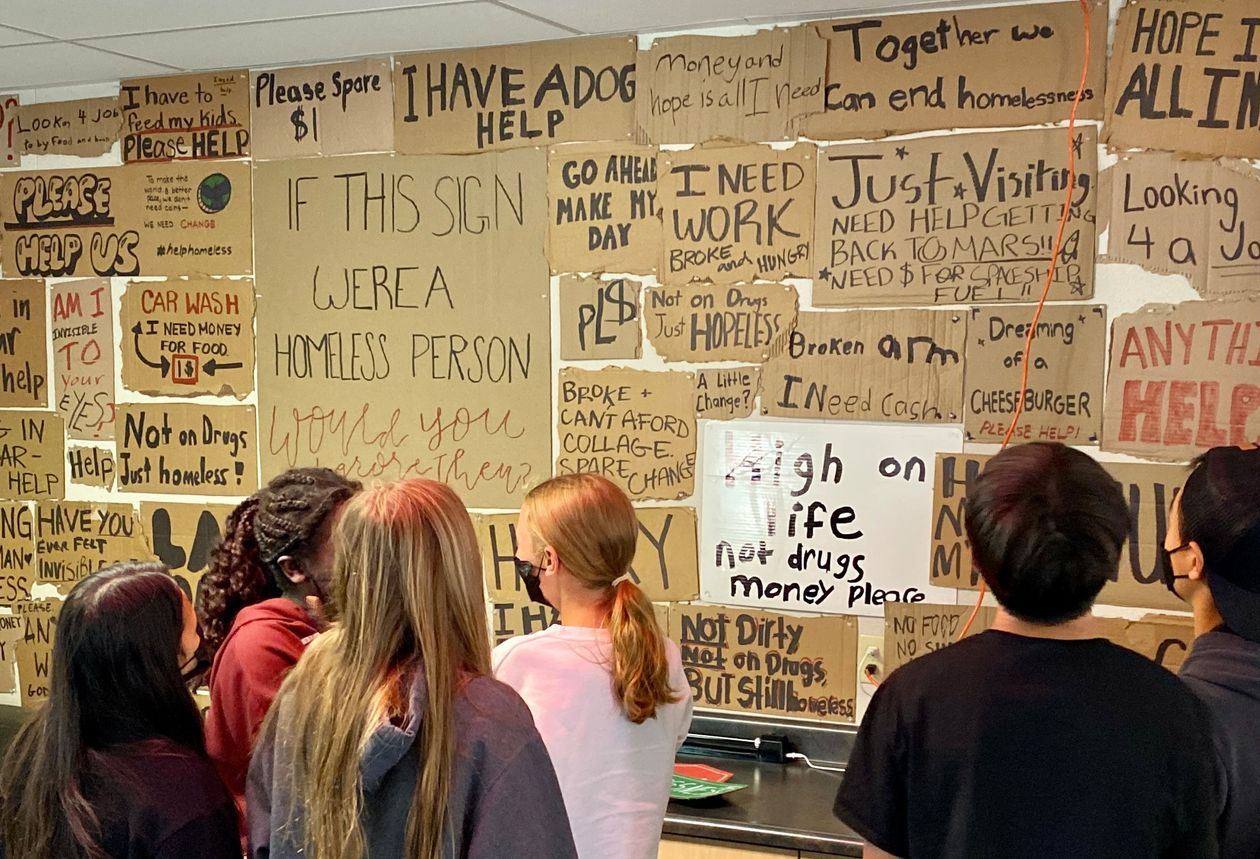 Look'n 4 Job
I have to
feed my kids.
Please HELP
Please Spare
$1
I HAVE A DOG
HELP
Money and
hope is all I need
Together we
can end homelessness
HOPE I
ALL I
PLEASE
HELP US
To make the
world a better
place, we don't
need coins—
WE NEED CHANGE
#helphomeless
IF THIS SIGN
WERE A
HOMELESS PERSON
Would you
ignore them?
GO AHEAD
MAKE MY
DAY
I NEED
WORK
BROKE and HUNGRY
Just Visiting
NEED HELP GETTING
BACK TO MARS!!
NEED $ FOR SPACESHIP
FUEL!!
Looking
4 a Jo
in
help
AM I
INVISIBLE
TO
your
EYES?
CAR WASH
I NEED MONEY
FOR FOOD
1$
PL$
Not on Drugs
Just HOPELESS
Broken arm
I Need Cash
"Dreaming
of a
CHEESEBURGER
PLEASE HELP!
ANYTH
HELP
G IN
AR-
HELP
Help
Not on Drugs
Just homeless!
BROKE +
CANT AFORD
COLLAGE.
SPARE CHANGE
A Little
Change?
High on
life
not drugs
money please
HAVE YOU
EVER FELT
INVISIBLE
PLEASE
AN
GOD
NOT Dirty
NOT on Drugs,
BUT Still homeless
NO FOOD